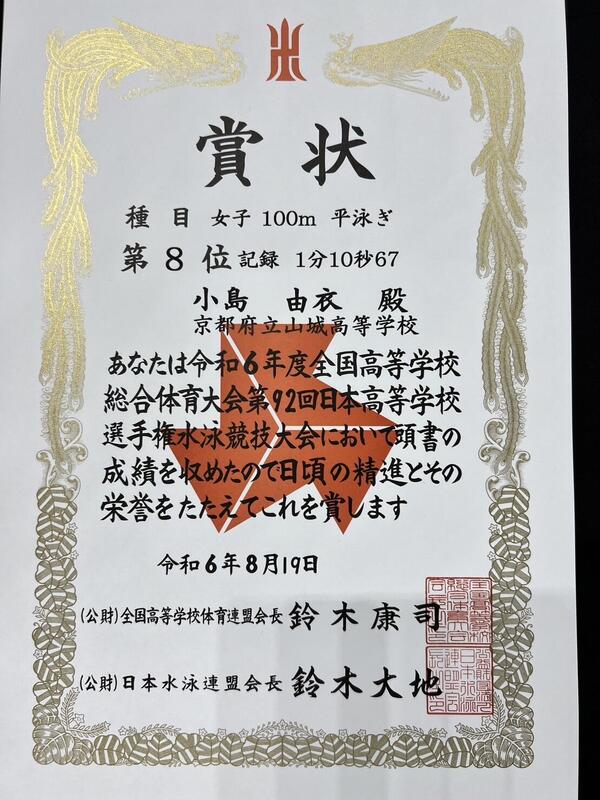 賞状
種目 女子 100m 平泳ぎ
第8位 記録 1分10秒67
小島 由衣 殿
京都府立山城高等学校
あなたは令和6年度全国高等学校
総合体育大会第92回日本高等学校
選手権水泳競技大会において頭書の
成績を収めたので日頃の精進とその
栄誉をたたえてこれを賞します
令和6年8月19日
(公財)全国高等学校体育連盟会長 鈴木康司
(公財)日本水泳連盟会長 鈴木大地